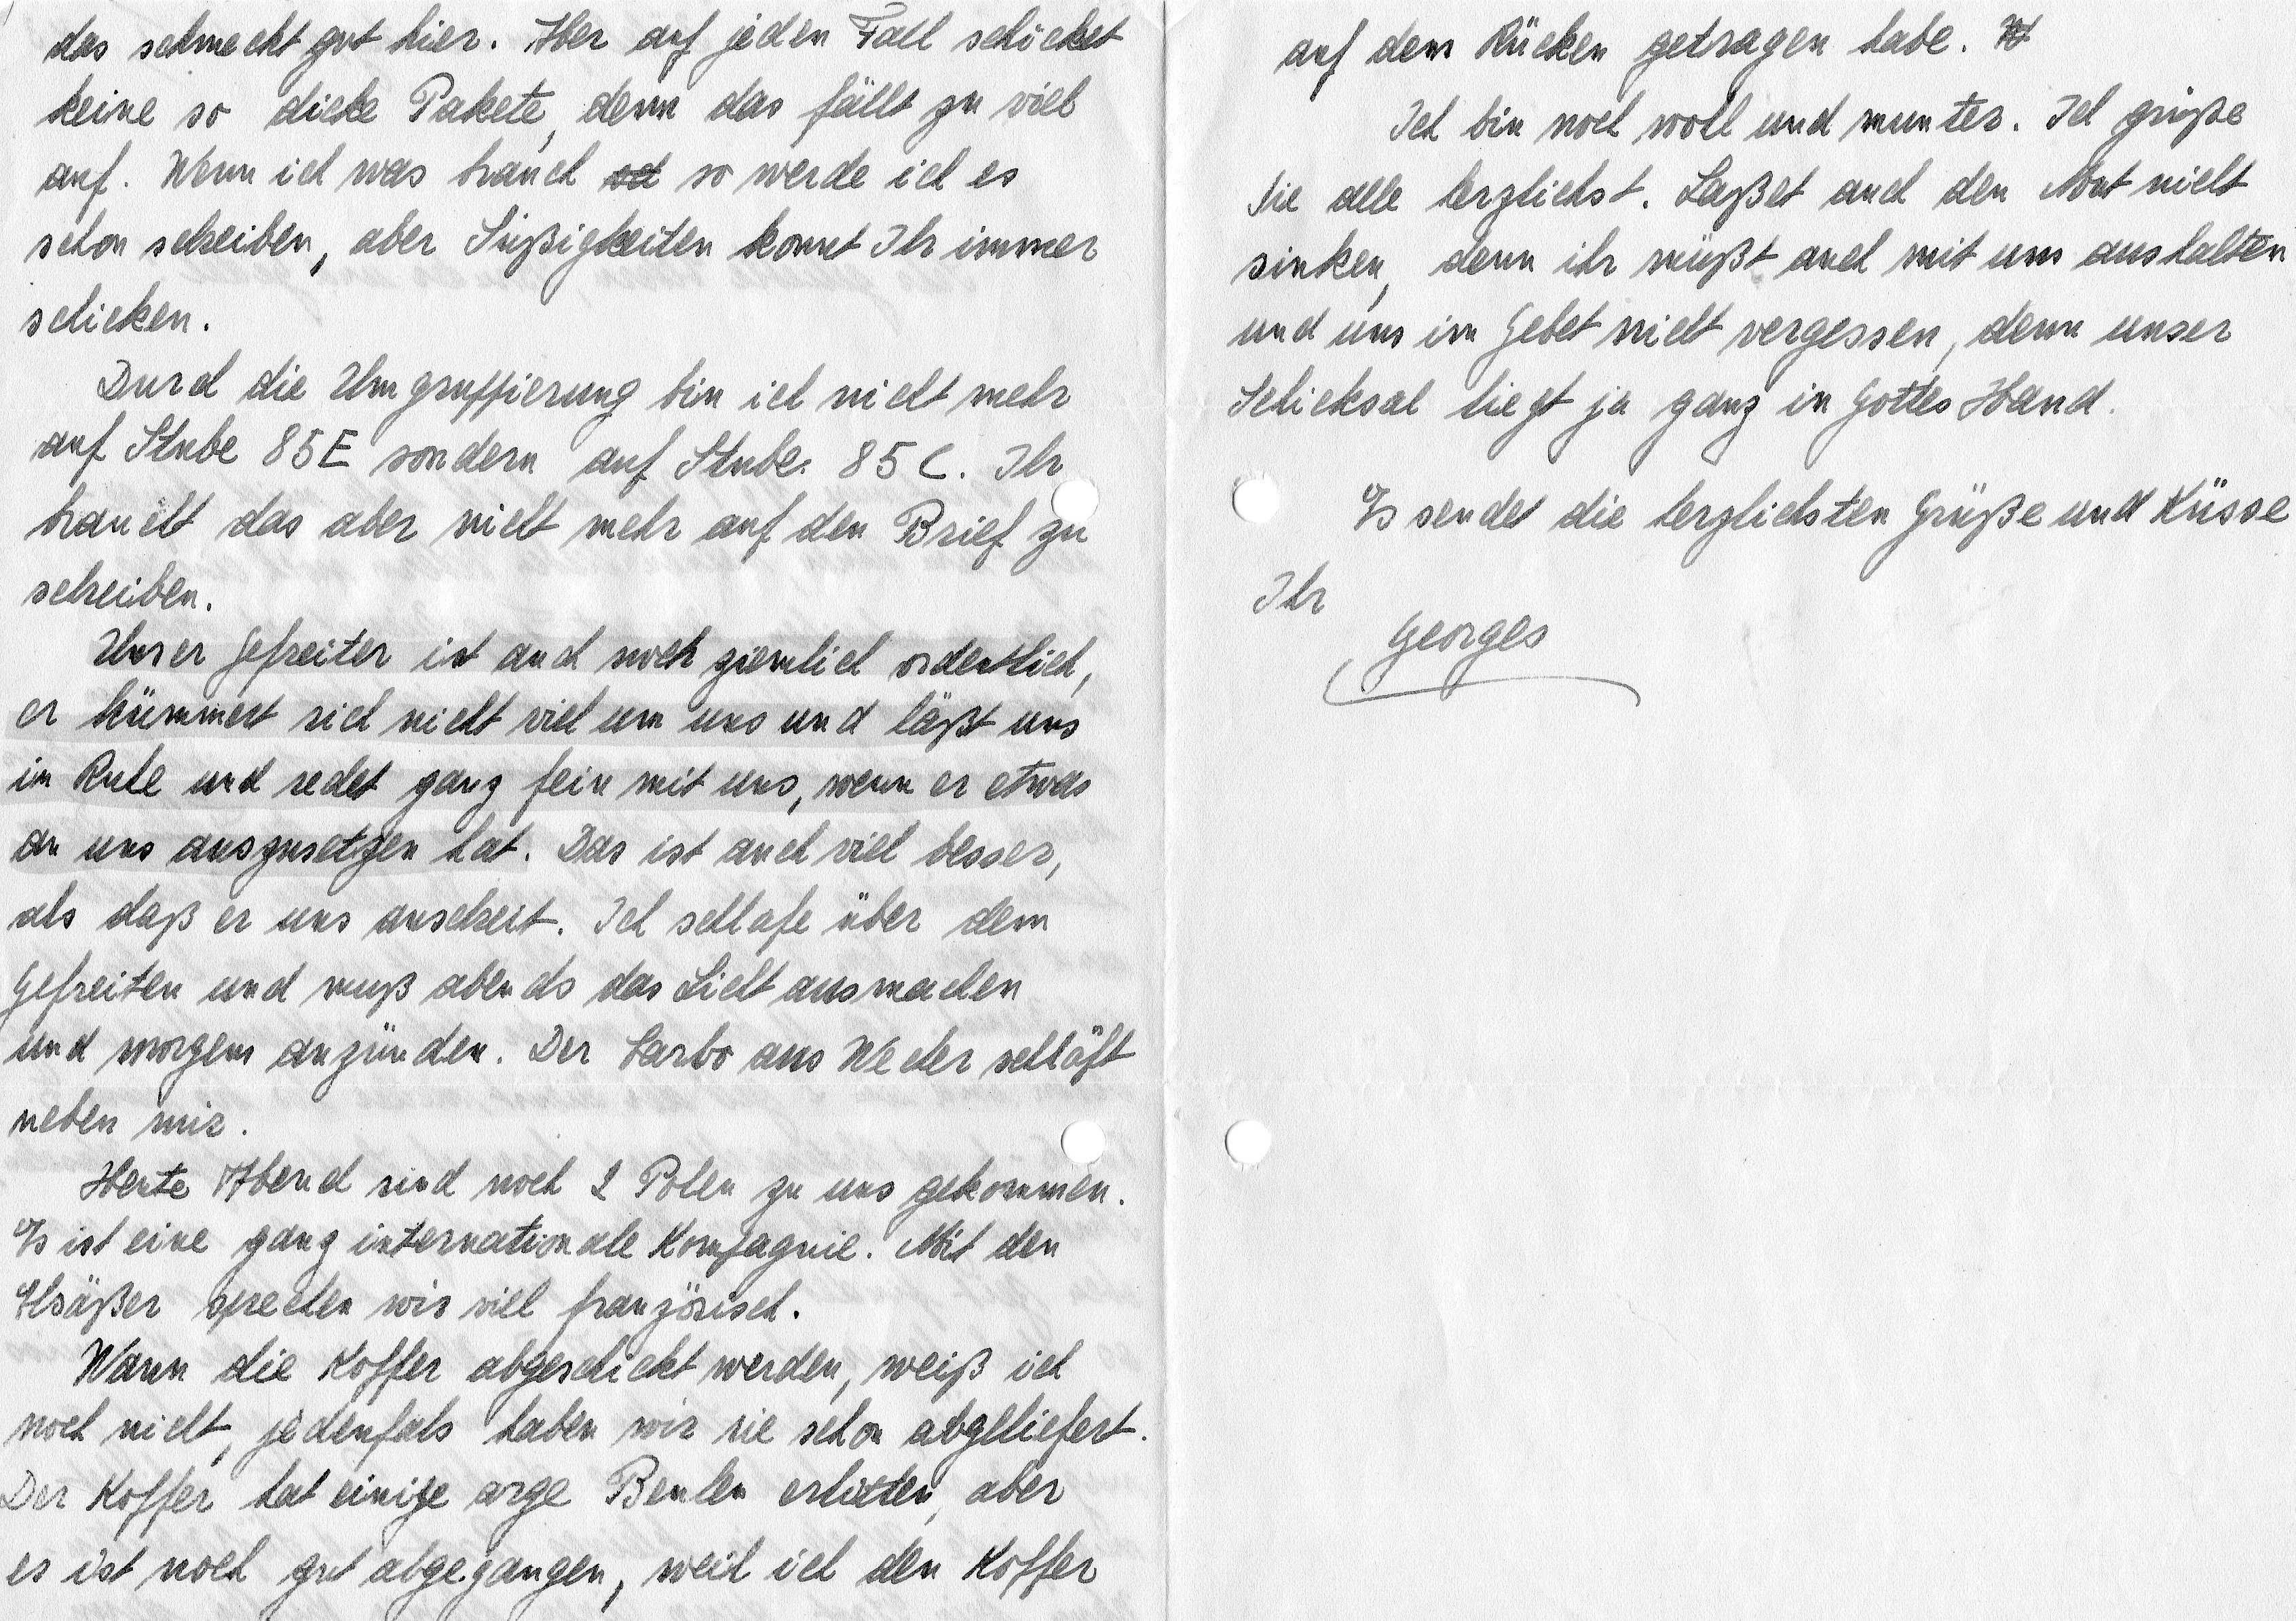 das schmeckt gut hier. Aber auf jeden Fall schicket
keine so dicke Pakete, denn das fällt zu viel
auf. Wenn ich was brauch so werde ich es
schon schreiben, aber Süßigkeiten konnt Ihr immer
schicken.
Durch die Umgruppierung bin ich nicht mehr
auf Stube 85E sondern auf Stube 85C. Ihr
braucht das aber nicht mehr auf den Brief zu
schreiben.
Unser Gefreiter ist auch noch ziemlich ordentlich,
er kümmert sich nicht viel um uns und läßt uns
in Ruhe und redet ganz fein mit uns, wenn er etwas
an uns auszusetzen hat. Das ist auch viel besser,
als daß er uns anschreit. Ich schlafe über dem
Gefreiten und muß abends das Licht ausmachen
und morgens anzünden. Der Sarbo aus Wecker schläft
neben mir.
Heute Abend sind noch 2 Polen zu uns gekommen.
Es ist eine ganz internationale Kompagnie. Mit den
Elsäßer sprechen wir viel französisch.
Wann die Koffer abgeschickt werden, weiß ich
noch nicht, jedenfals haben wir sie schon abgeliefert.
Der Koffer hat einige arge Beulen erlitten, aber
es ist noch gut abgegangen, weil ich den Koffer
auf dem Rücken getragen habe.
Ich bin noch wohl und munter. Ich grüße
Sie alle herzlichst. Laßet auch den Mut nicht
sinken, denn ihr müßt auch mit uns aushalten
und uns im Gebet nicht vergessen, denn unser
Schicksal liegt ja ganz in Gottes Hand.
Es sendet die herzlichsten Grüße und Küsse
Ihr
Georges